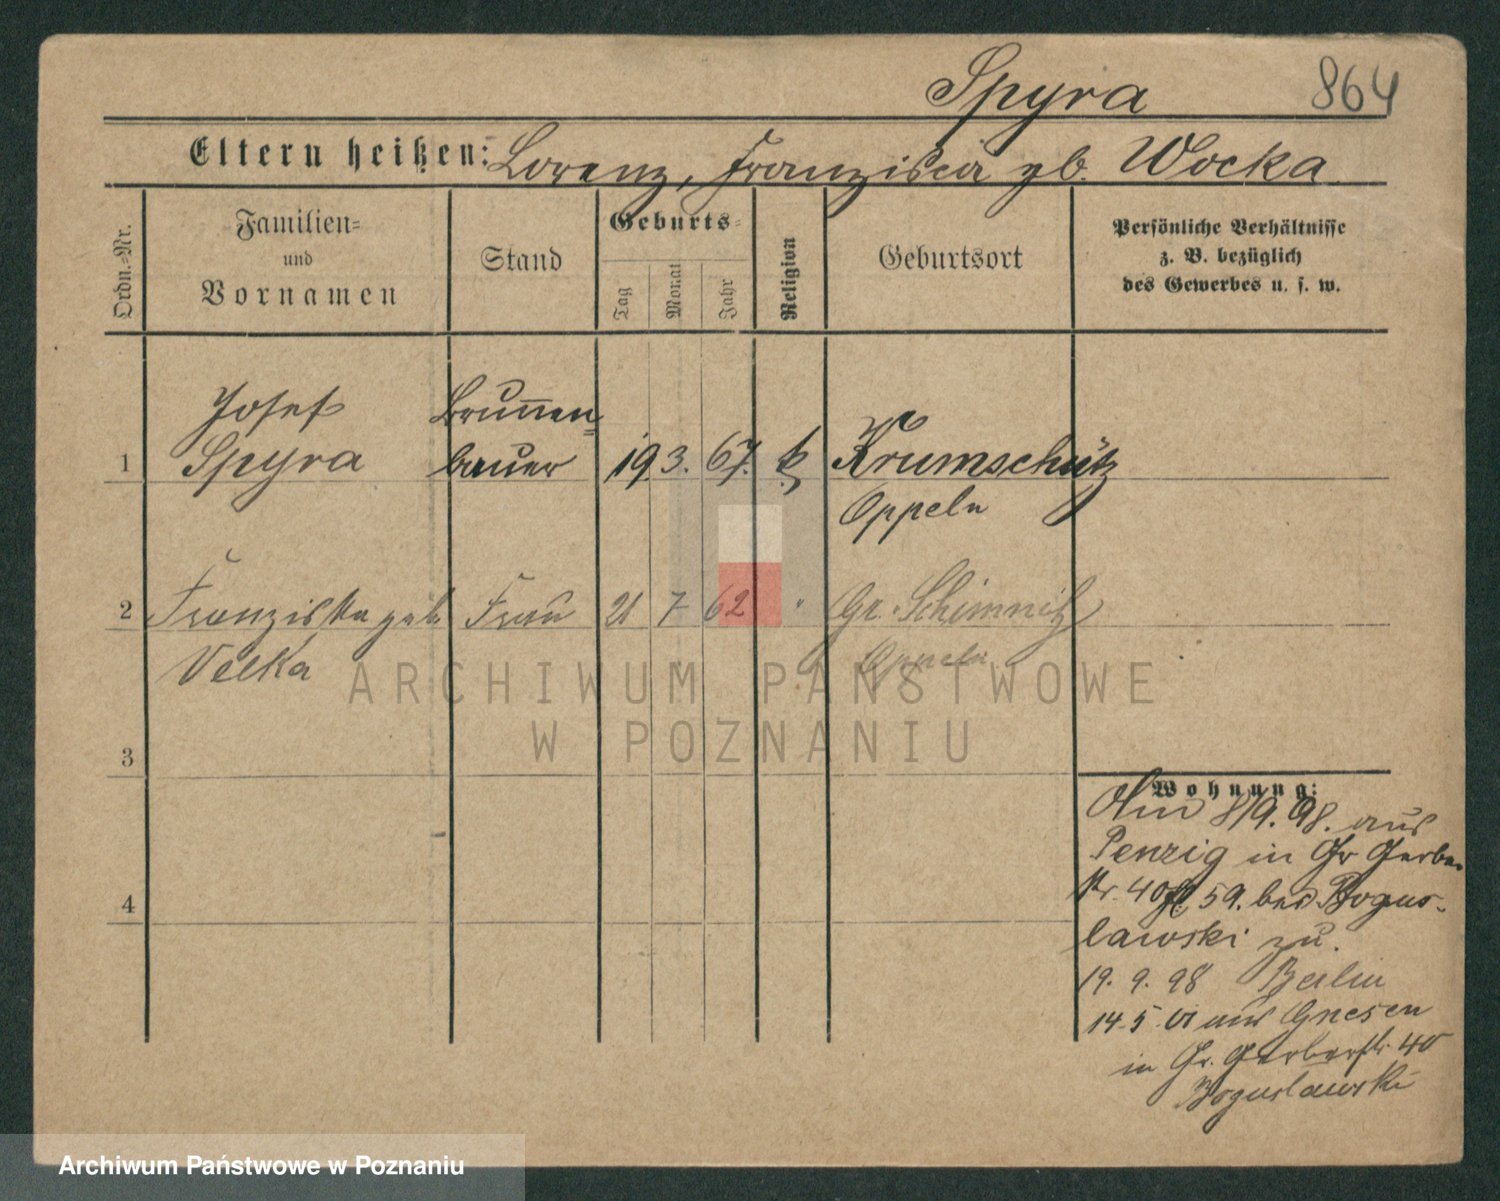 Spyra 864
Eltern heißen: Lorenz, Franziska gb. Wocka
Ordn.-Nr.
Familien-
und
Vornamen
Stand
Geburts-
Tag
Monat
Jahr
Religion
Geburtsort
Persönliche Verhältnisse
z. B. bezüglich
des Gewerbes u. s. w.
Josef Brunnen-
1 Spyra bauer 19. 3. 67. k. Krumschütz
Oppeln
2 Franziska geb. Frau 21 7 62 " Gr. Schimnitz
Velka Oppeln
ARCHIWUM PAŃSTWOWE
W POZNANIU
3
Wohnung:
8/9. 98. aus
Penzig in Gr Gerber
str. 40 59. bei Bogus-
4
lawski zu.
19. 9. 98 Berlin
14. 5. 01 aus Gnesen
in Gr. Gerberstr. 40
Boguslawski
Archiwum Państwowe w Poznaniu